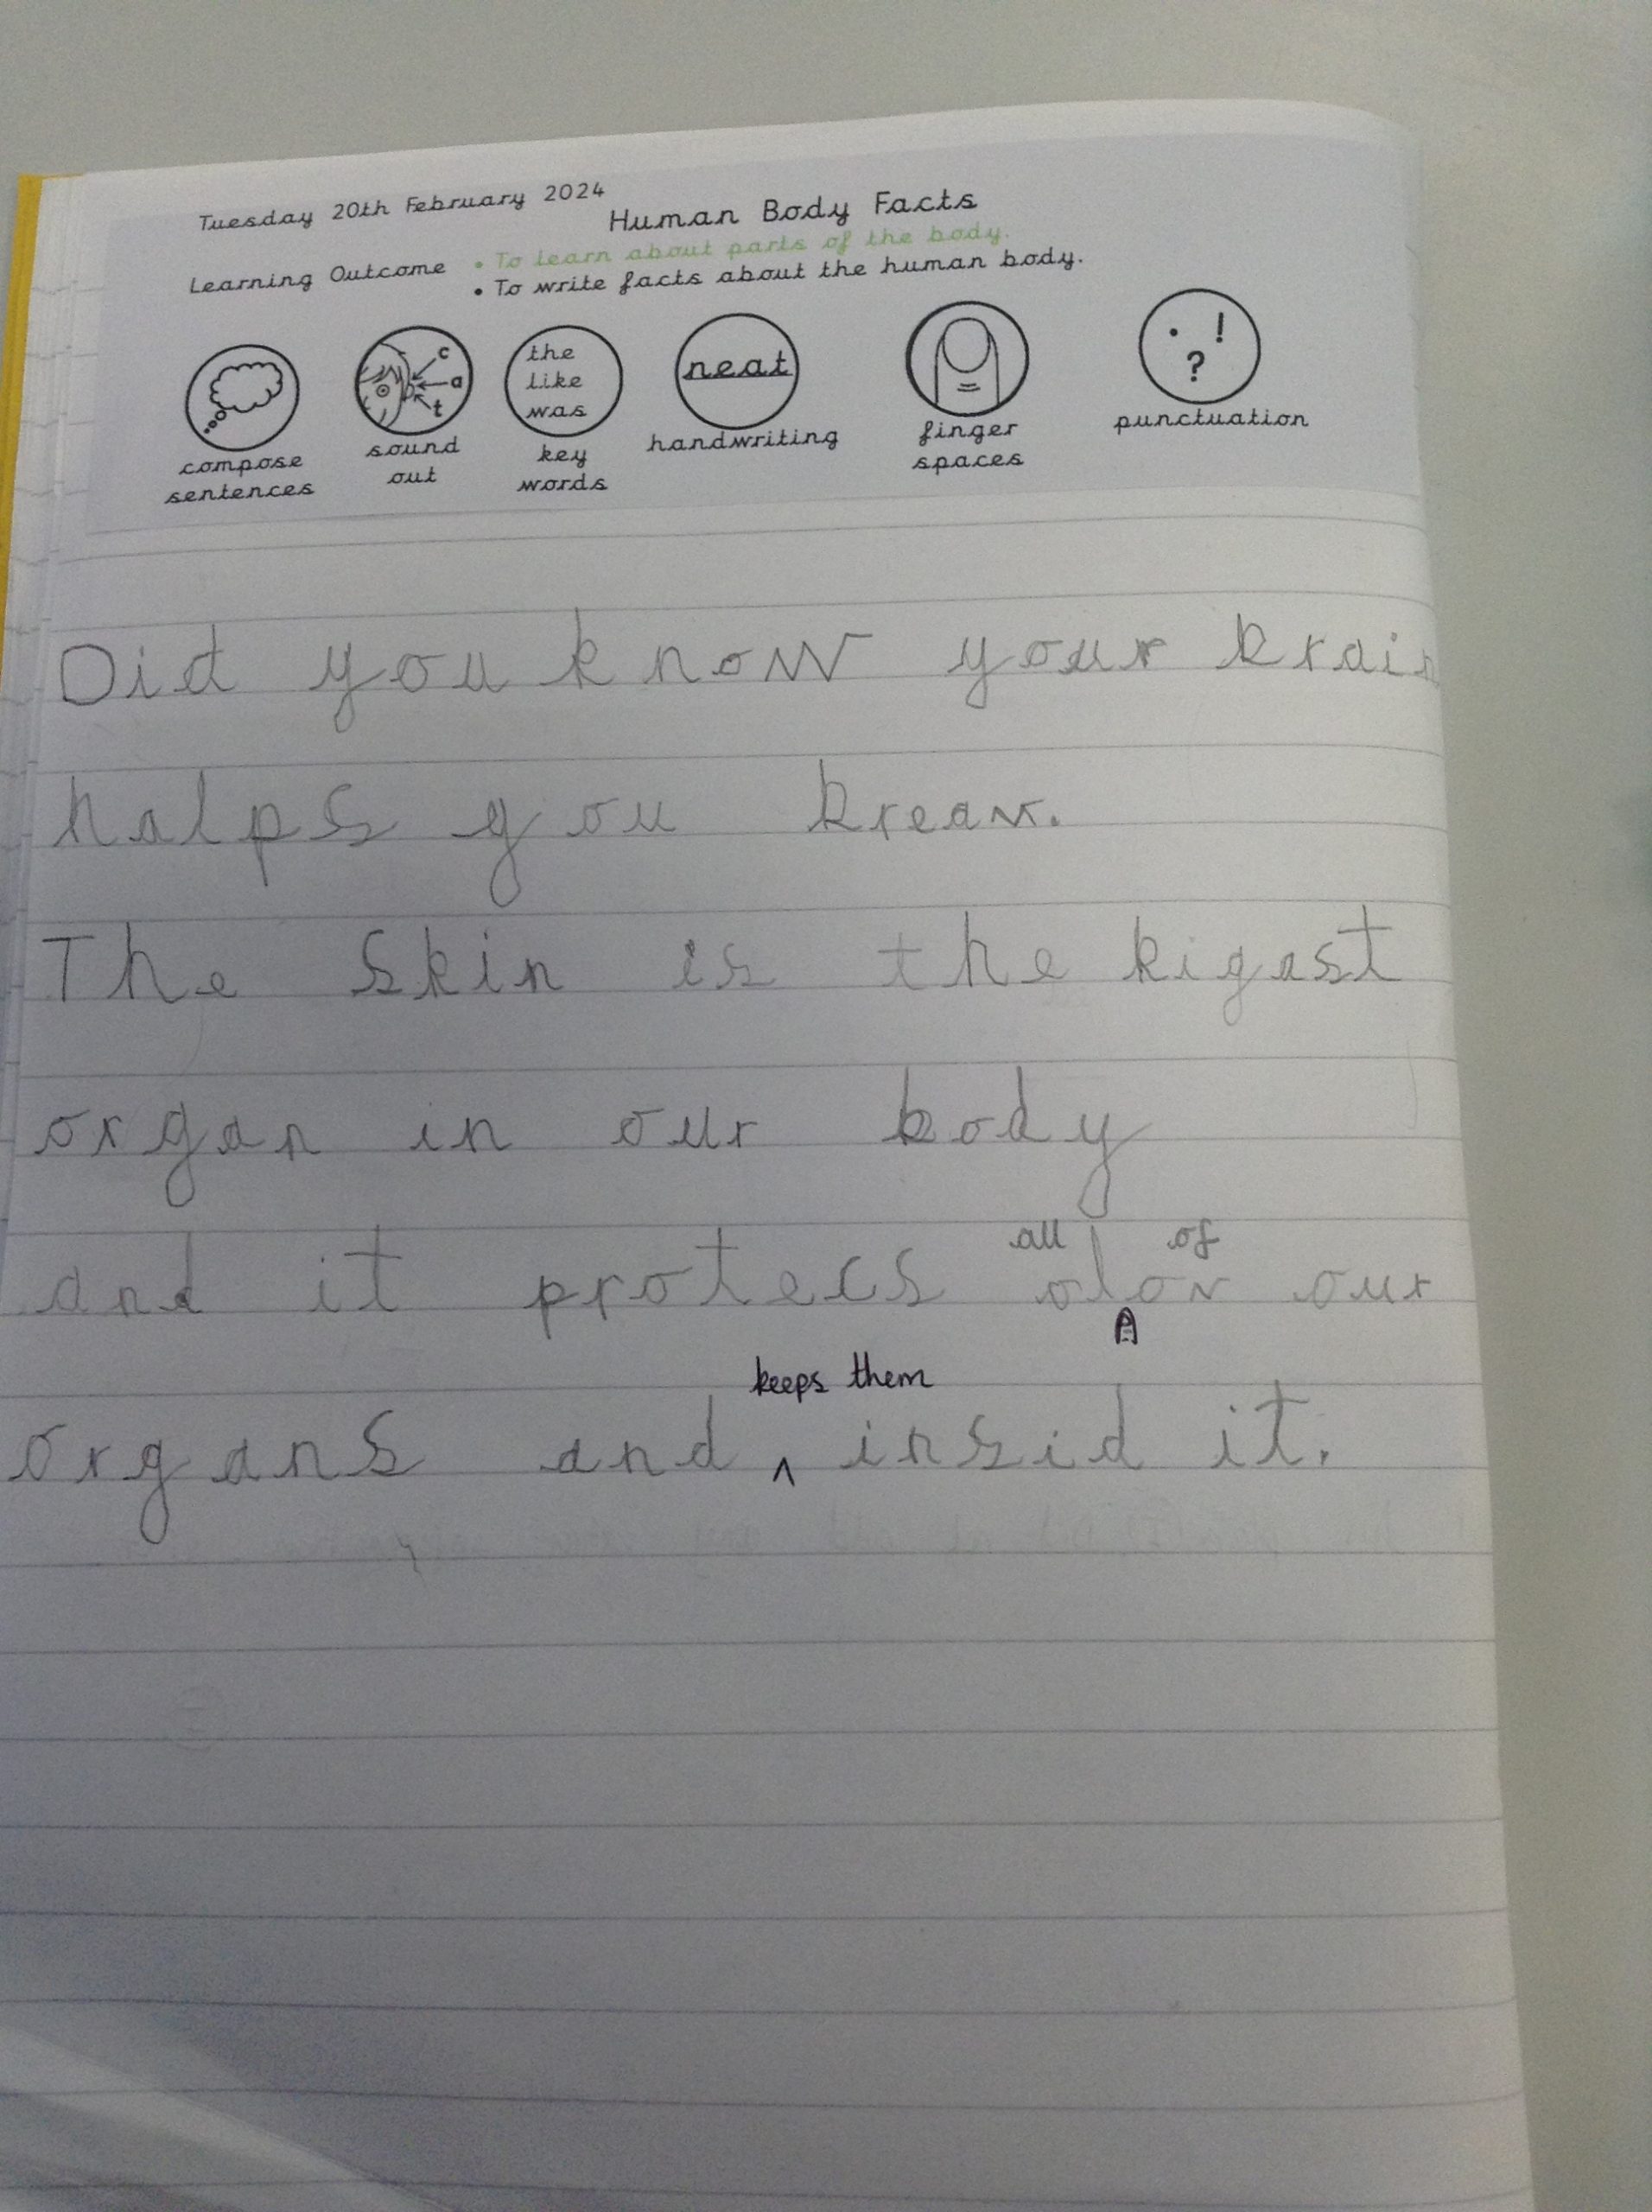 Tuesday 20th February 2024
Human Body Facts
Learning Outcome
• To learn about parts of the body.
• To write facts about the human body.
c
a
t
the
like
was
neat
. !
?
compose
sentences
sound
out
key
words
handwriting
finger
spaces
punctuation
Did you know your brain
halps you breav.
The skin is the bigast
organ in our body
all of
and it protecs olov our
keeps them
organs and ^ insid it.